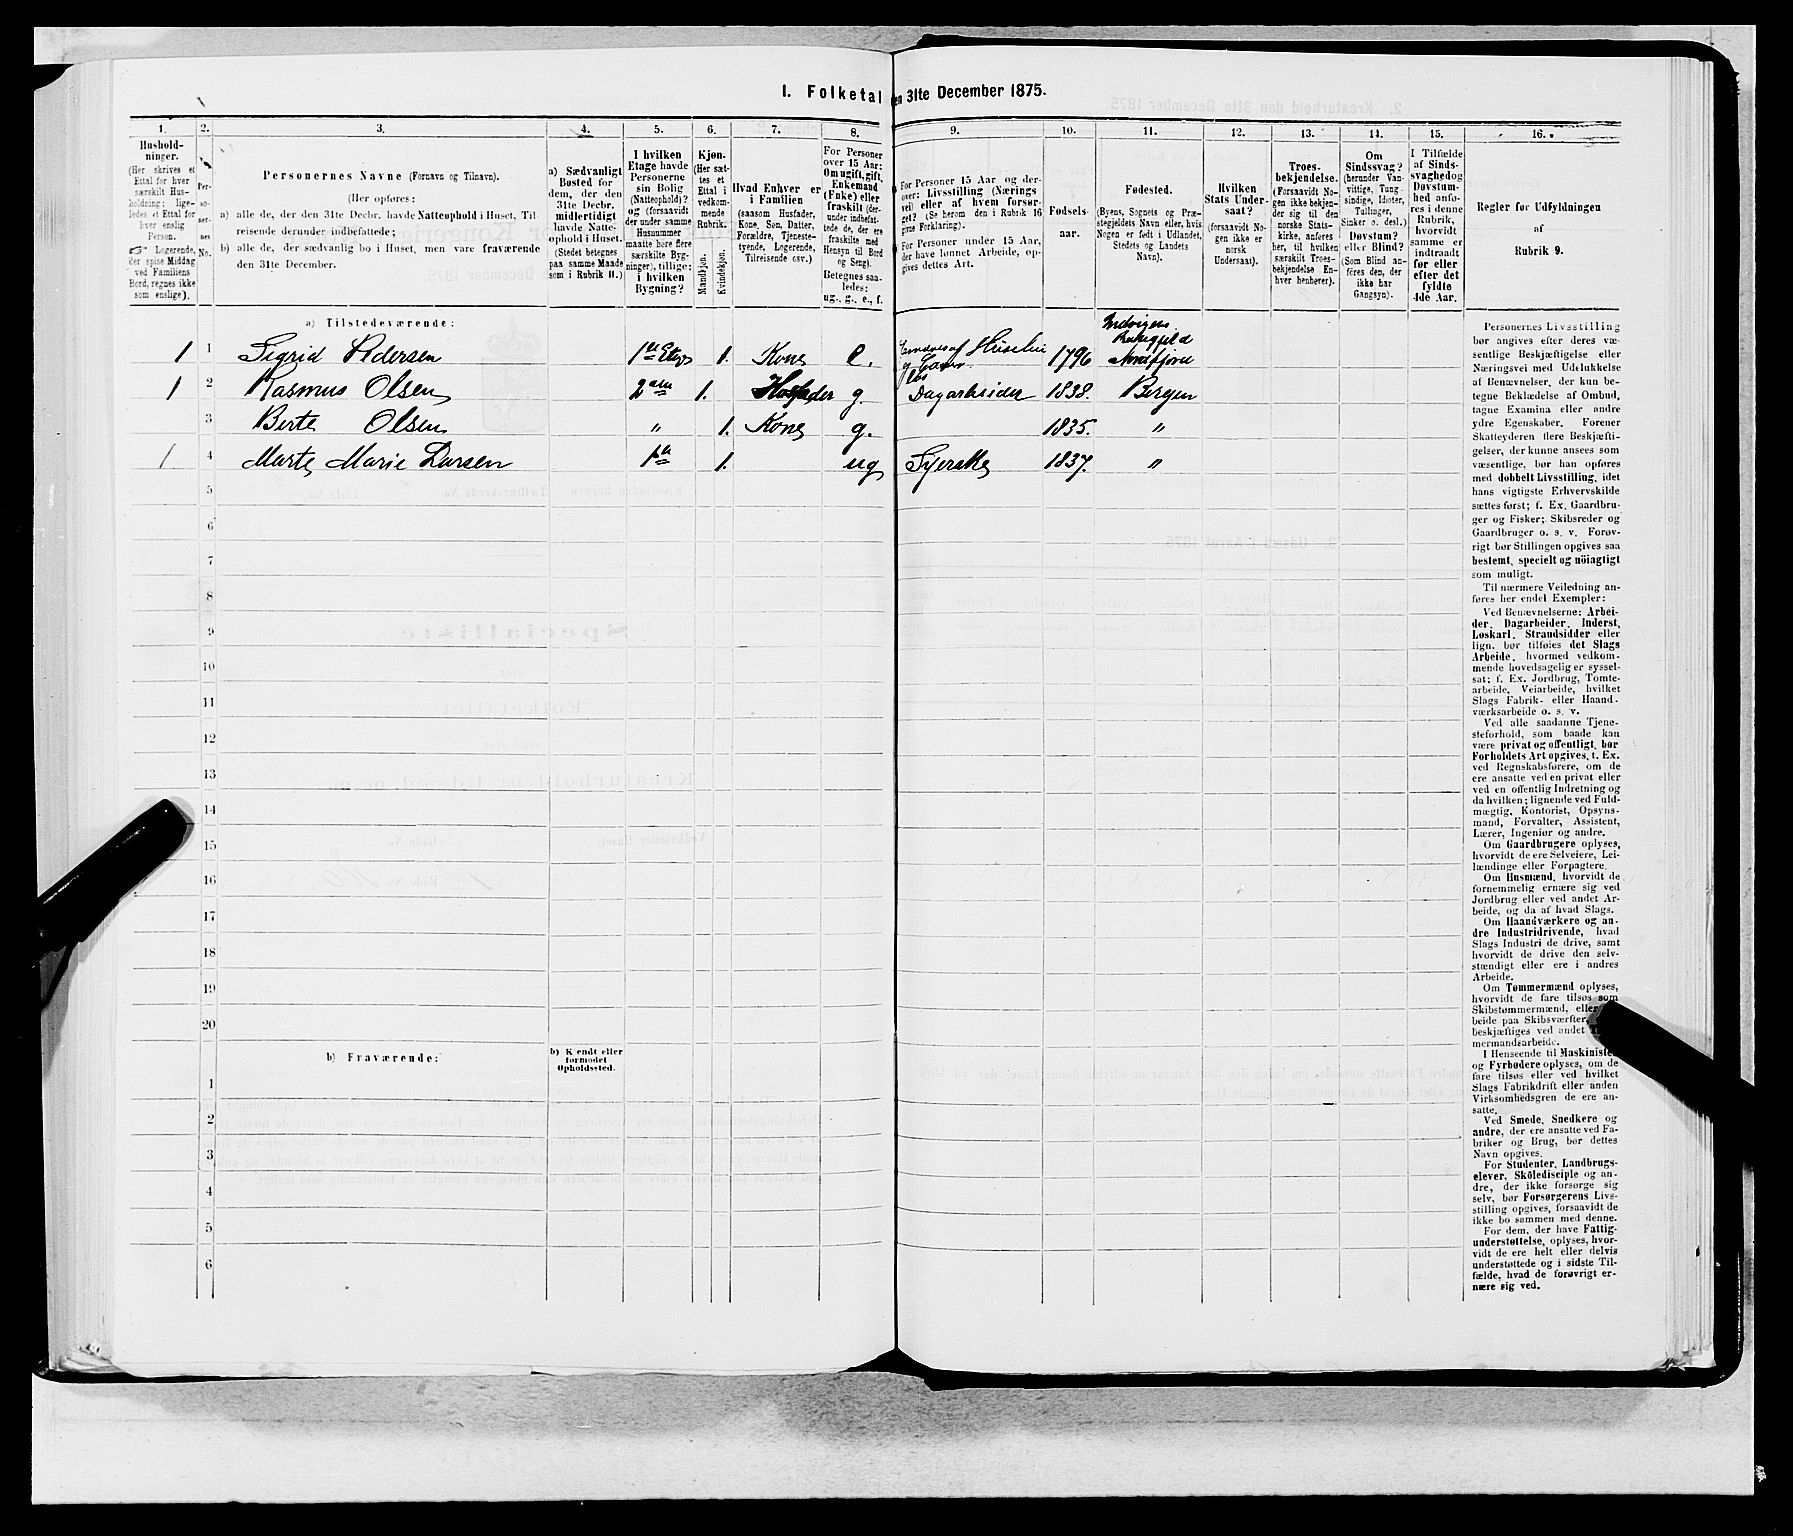 1. Folketal den 31te December 1875.
1. 2. 3. 4. 5. 6. 7. 8. 9. 10. 11. 12. 13. 14. 15. 16.
Hushold-
ninger.
(Her skrives et
Ettal for hver
særskilt Hus-
holdning; lige-
ledes et Ettal for
hver enslig
Person.
Logerende,
der spise Middag
ved Familiens
Bord, regnes ikke
som enslige).
Per-
so-
ner-
nes
No.
Personernes Navne (Fornavn og Tilnavn).
(Her opføres:
a) alle de, der den 31te Decbr. havde Natteophold i Huset, Til-
reisende derunder indbefattede;
b) alle de, der sædvanlig bo i Huset, men vare fraværende
den 31te December.
a) Sædvanligt
Bosted for
dem, der den
31te Decbr.
midlertidigt
havde Natte-
ophold i Huset.
(Stedet betegnes
paa samme Maade
som i Rubrik 11.)
I hvilken
Etage havde
Personerne
sin Bolig
(Natteophold)?
og (forsaavidt
der under samme
Husnummer
maatte høre flere
særskilte Byg-
ninger), tillige:
i hvilken
Bygning?
Kjøn.
(Her sæt-
tes et
Ettal i
vedkom-
mende
Rubrik.)
Mandkjøn.
Kvindekjøn.
Hvad Enhver er
i Familien
(saasom Husfader,
Kone, Søn, Datter,
Forældre, Tjeneste-
tyende, Logerende,
Tilreisende osv.)
For Personer
over 15 Aar:
Om ugift, gift,
Enkemand
(Enke) eller
fraskilt (der-
under indbefat-
tede de, der ere
fraskilte med
Hensyn til Bord
og Seng).
Betegnes saa-
ledes:
ug., g., e., f.
For Personer 15 Aar og der-
over: Livsstilling (Nærings-
vei) eller af hvem forsør-
get? (Se herom den i Rubrik 16
givne Forklaring).
For Personer under 15 Aar,
der have lønnet Arbeide, op-
gives dettes Art.
Fødsels-
aar.
Fødested.
(Byens, Sognets og Præ-
stegjeldets Navn eller, hvis
Nogen er født i Udlandet,
Stedets og Landets
Navn).
Hvilken
Stats Under-
saat?
(forsaavidt No-
gen ikke er
norsk
Undersaat).
Troes-
bekjendelse.
(Forsaavidt No-
gen ikke bekjen-
der sig til den
norske Stats-
kirke, anføres
her, til hvilken
særskilt Troes-
bekjendelse En-
hver henhører).
Om
Sindssvag?
(herunder Van-
vittige, Tung-
sindige, Idioter,
Tullinger,
Sinker o. desl.)
Døvstum?
eller Blind?
(Som Blind an-
føres den, der
ikke har
Gangsyn).
I Tilfælde
af Sinds-
svaghed og
Døvstum-
hed anfø-
res i denne
Rubrik,
hvorvidt
samme er
indtraadt
før eller
efter det
fyldte
4de Aar.
Regler før Udfyldningen
af
Rubrik 9.
a) Tilstedeværende:
1 1 Sigrid Pedersen 1ste Etage 1. Kone e. Ernæres af 1796 Indvigens Nordfjord
1 2 Rasmus Olsen 2den 1. Husfader g. Dagarbeider 1838. Bergen
3 Berte Olsen " 1. Kone g. 1835. "
1 4 Marte Marie Larsen 1ste 1. ug Syerske 1837. "
5
6
7
8
9
10
11
12
13
14
15
16
17
18
19
20
b) Fraværende:
b) Kjendt eller
formodet
Opholdssted.
1
2
3
4
5
6
Personernes Livsstilling
bør angives efter deres væ-
sentlige Beskjæftigelse eller
Næringsvei med Udelukkelse
af Benævnelser, der kun be-
tegne Beklædelse af Ombud,
tagne Examina eller andre
ydre Egenskaber. Forener
Skatteyderen flere Beskjæfti-
gelser, der kunne ansees som
væsentlige, bør han opføres
med dobbelt Livsstilling, idet
hans vigtigste Erhvervskilde
sættes først; f. Ex. Gaardbru-
ger og Fisker; Skibsreder og
Gaardbruger o. s. v. Forøv-
rigt bør Stillingen opgives saa
bestemt, specielt og nöiagtigt
som muligt.
Til nærmere Veiledning an-
føres her endel Exempler:
Ved Benævnelserne: Arbei-
der, Dagarbeider, Inderst,
Løskarl, Strandsidder eller
lign. bør tilføies det Slags
Arbeide, hvormed vedkom-
mende hovedsagelig er syssel-
sat; f. Ex. Jordbrug, Tomte-
arbeide, Veiarbeide, hvilket
Slags Fabrik- eller Haand-
værksarbeide o. s. v.
Ved alle saadanne Tjene-
steforhold, som baade kan
være privat og offentligt, bør
Forholdets Art opgives, t. Ex.
ved Regnskabsførere, om de
ere ansatte ved en privat eller
ved en offentlig Indretning og
da hvilken; lignende ved Fuld-
mægtig, Kontorist, Opsyns-
mand, Forvalter, Assistent,
Lærer, Ingeniør og andre.
Om Gaardbrugere oplyses,
hvorvidt de ere Selveiere, Lei-
lændinge eller Forpagtere.
Om Husmænd, hvorvidt de
fornemmelig ernære sig ved
Jordbrug eller ved andet Ar-
beide, og da af hvad Slags.
Om Haandværkere og an-
dre Industridrivende, hvad
Slags Industri de drive, samt
hvorvidt de drive den selv-
stændigt eller ere i andres
Arbeide.
Om Tømmermænd oplyses,
hvorvidt de fare tilsøs som
Skibstømmermænd, eller
beide paa Skibsværfter,
beskjæftiges ved andet
mermandsarbeide.
I Henseende til Maskinister
og Fyrbødere oplyses, om de
fare tilsøs eller ved hvilket
Slags Fabrikdrift eller anden
Virksomhedsgren de ere an-
satte.
Ved Smede, Snedkere og
andre, der ere ansatte ved Fa-
briker og Brug, bør dettes
Navn opgives.
For Studenter, Landbrugs-
elever, Skoledisciple og an-
dre, der ikke forsørge sig
selv, bør Forsørgerens Livs-
stilling opgives, forsaavidt de
ikke bo sammen med denne.
For dem, der have Fattig-
understøttelse, oplyses, hvor-
vidt de ere helt eller delvis
understøttede og i sidste Til-
fælde, hvad de forøvrigt er-
nære sig ved.